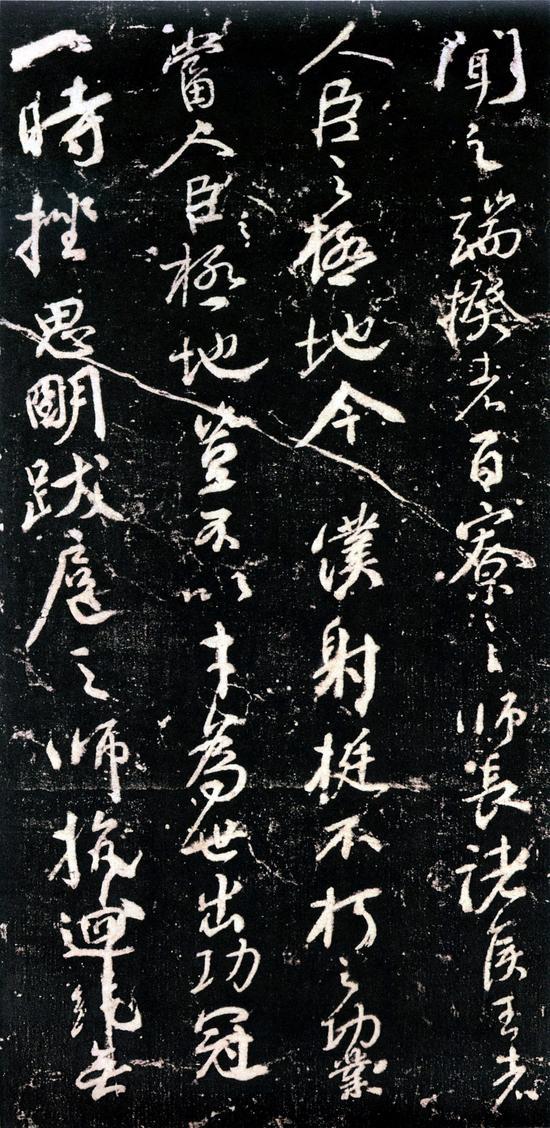 聞之端揆者百寮之師長諸侯王者
人臣之極地今僕射挺不朽之功業
當人臣之極地豈不以才為世出功冠
一時挫思明跋扈之師抗迴紇無